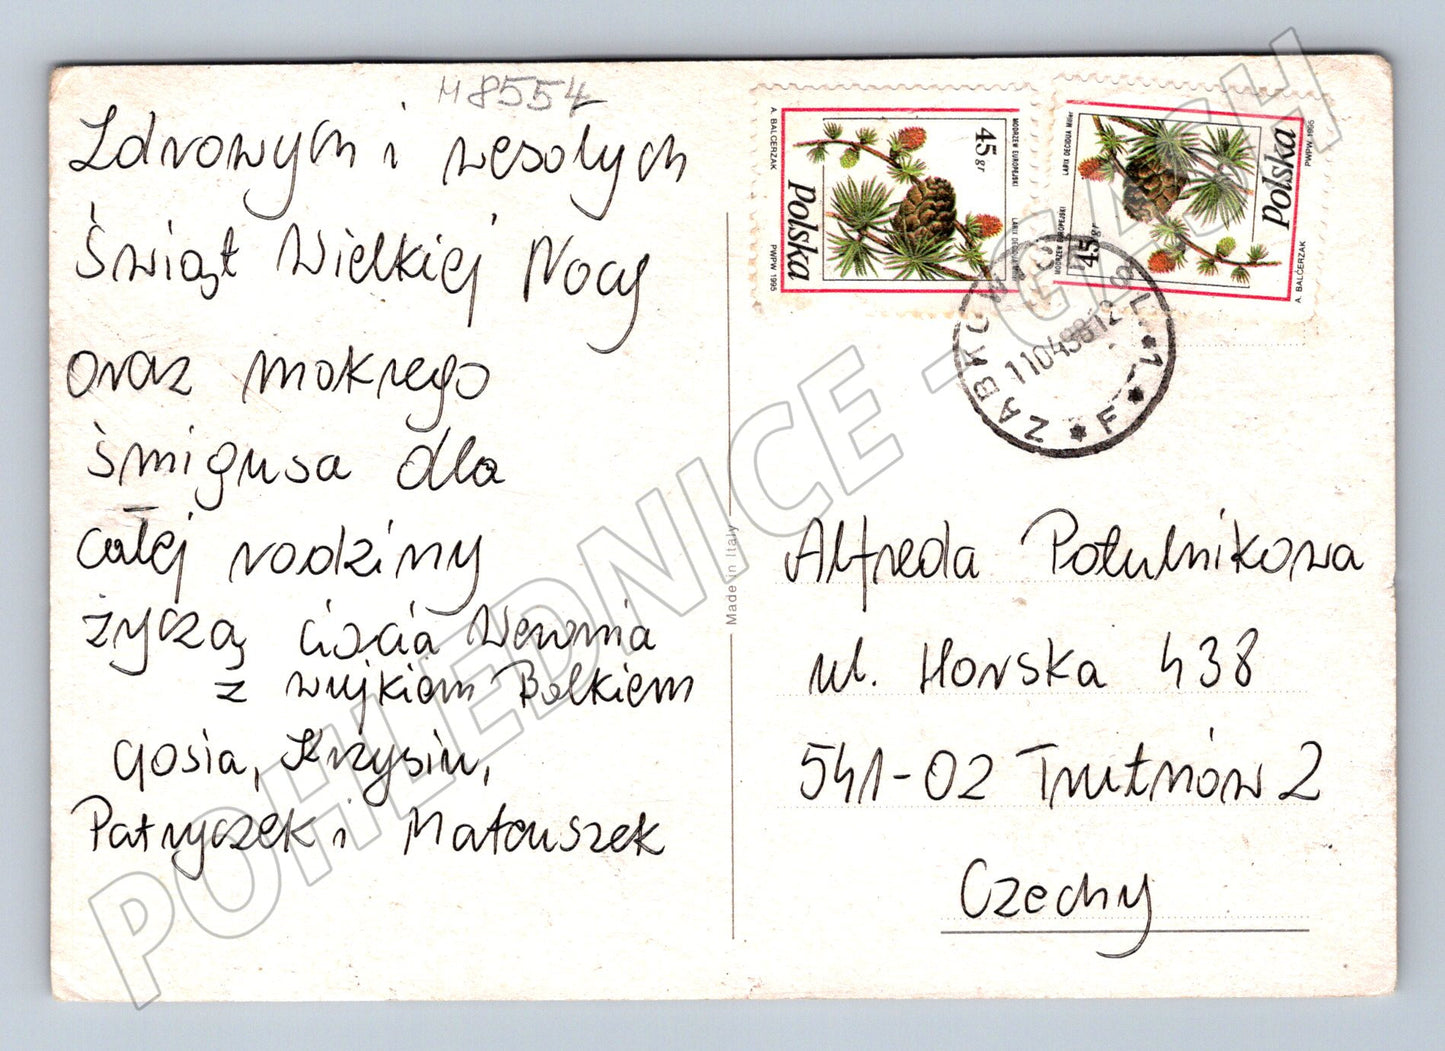 M8554
Zdrowych i wesołych
Świąt Wielkiej Nocy
oraz mokrego
śmigusa dla
całej rodziny
życzą ciocia Weronia
z wujkiem Bolkiem
Gosia, Krzysiu,
Patryczek i Mateuszek
Made in Italy
A. BALCERZAK
PWPW 1995
Polska
45 gr
MODRZEW EUROPEJSKI
LARIX DECIDUA
LARIX DECIDUA Miller
MODRZEW EUROPEJSKI
45 gr
Polska
PWPW 1995
A. BALCERZAK
110498-12
F
Alfreda Potulnikowa
ul. Horska 438
541-02 Trutnów 2
Czechy
POHLEDNICE - CASH